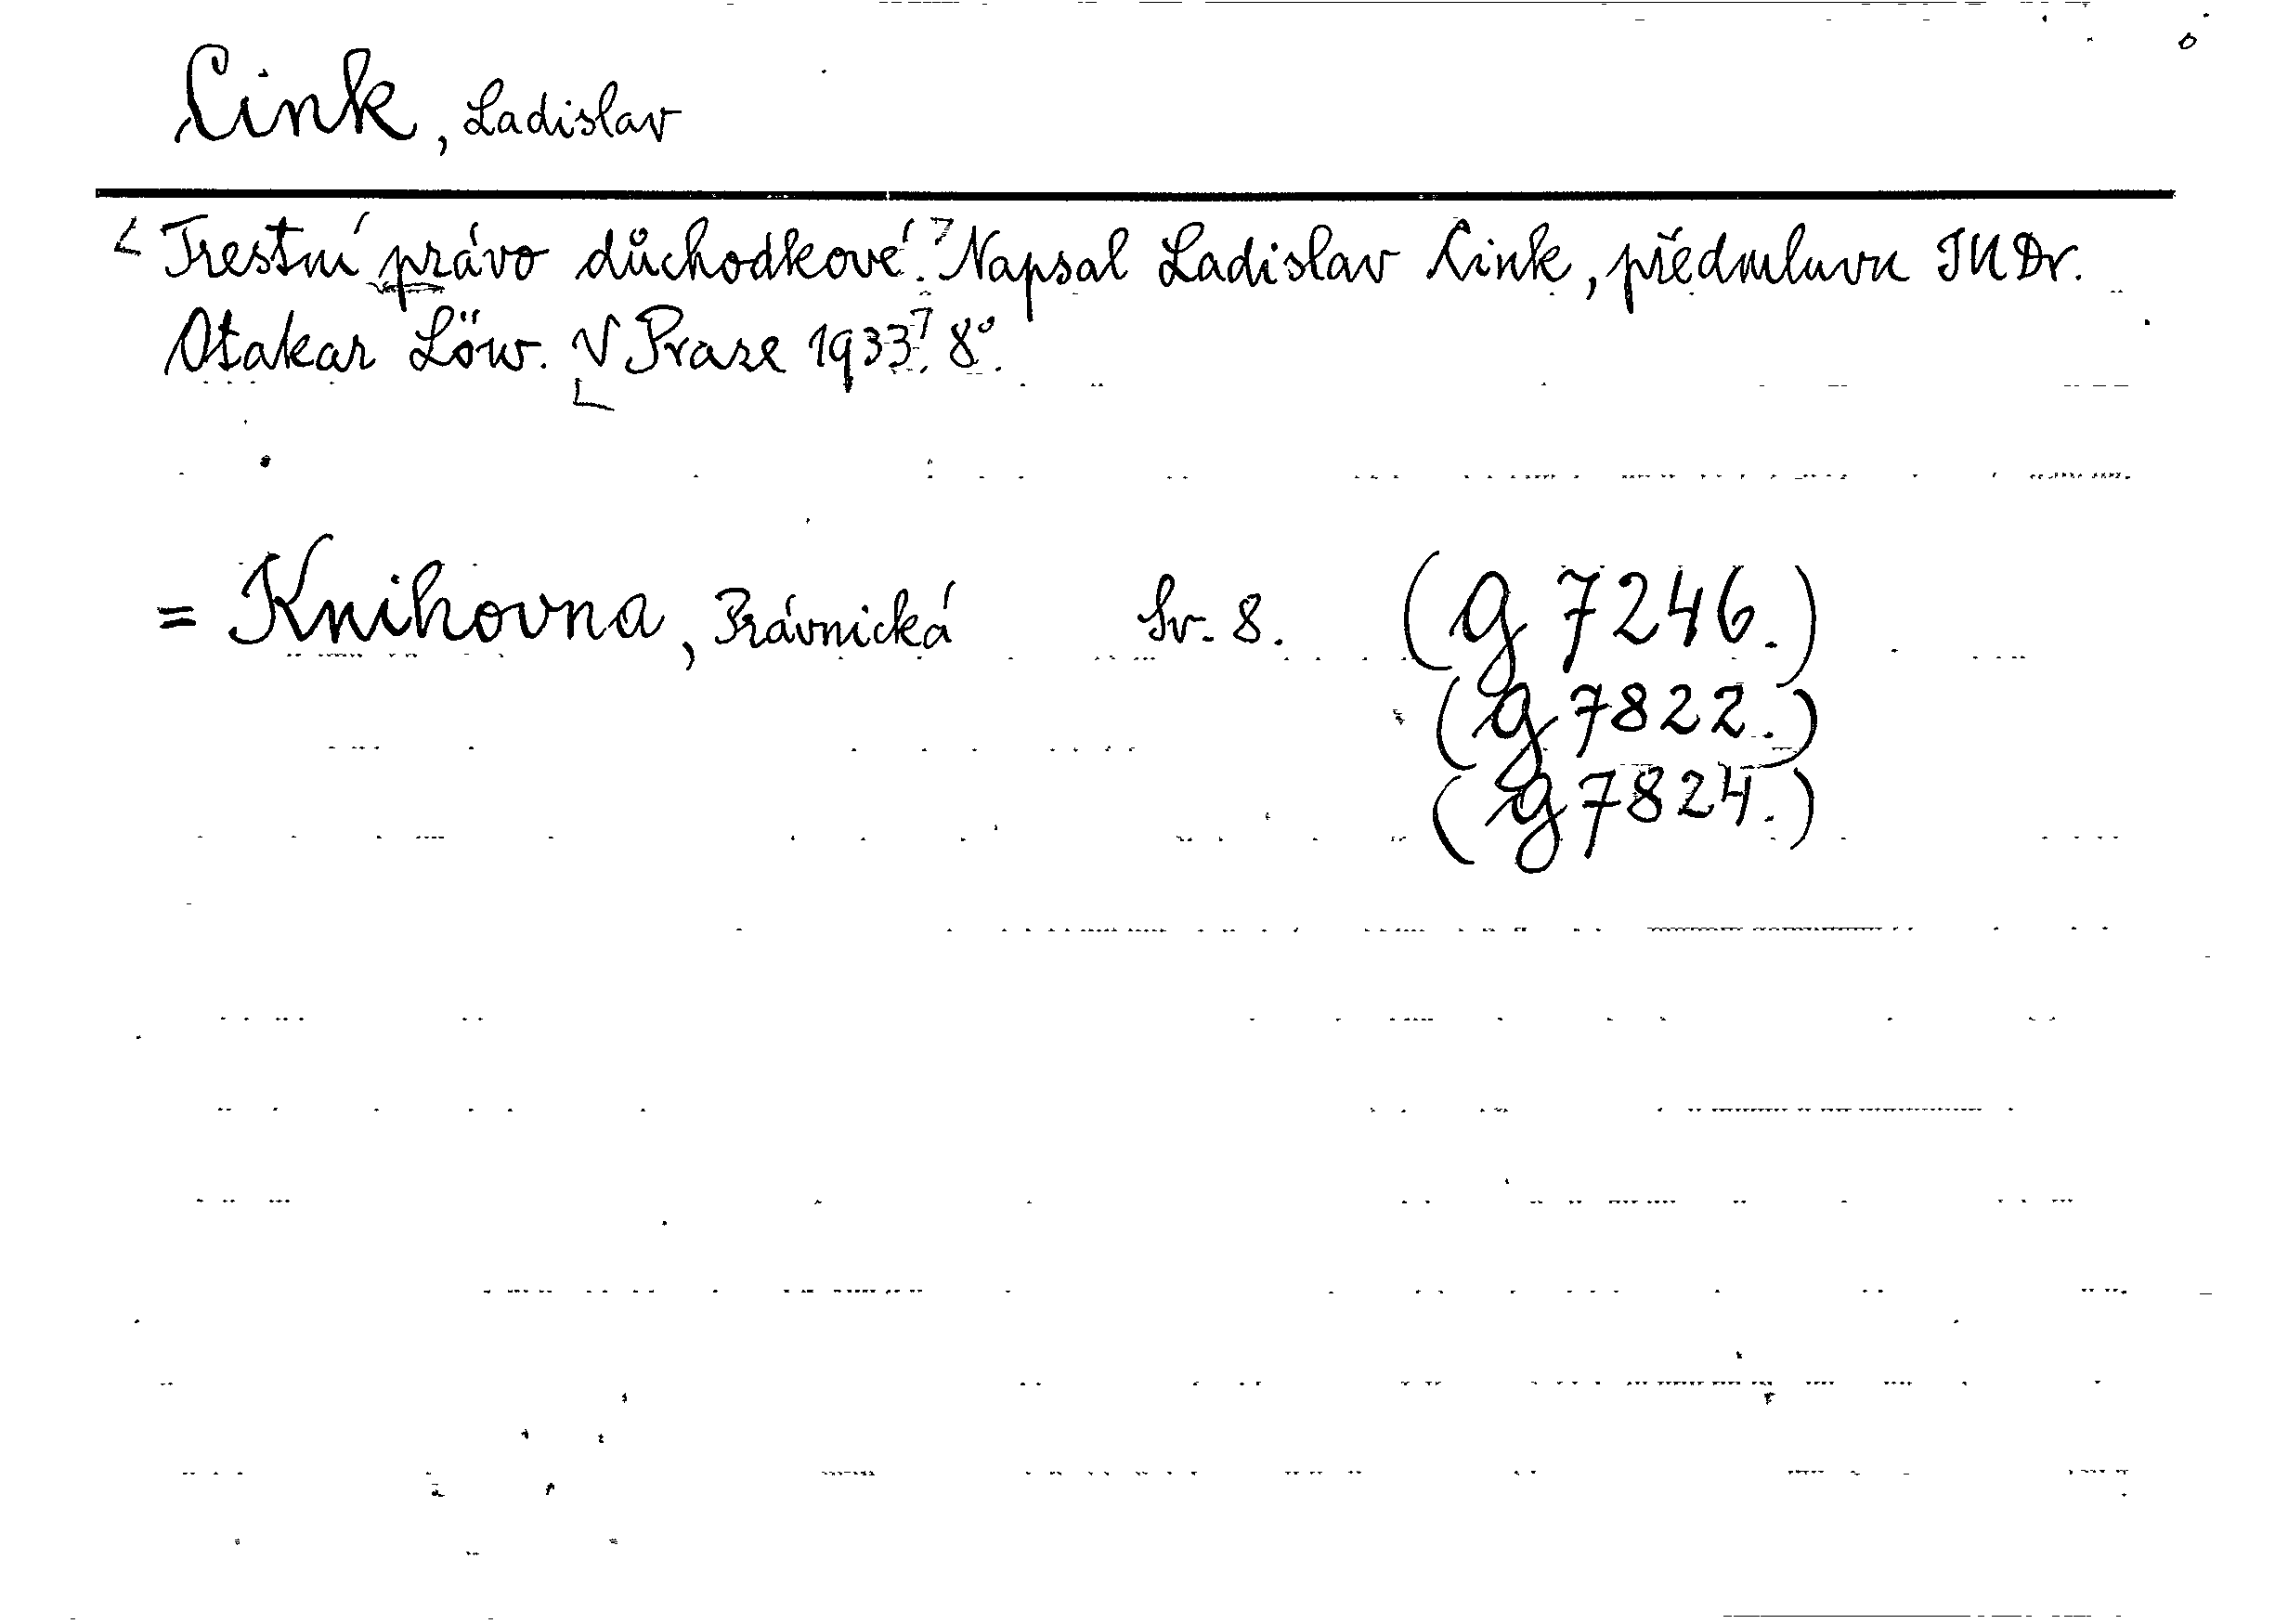 Cink, Ladislav
Trestní právo důchodkové. Napsal Ladislav Cink, předmluvu JUDr.
Otakar Löw. V Praze 1933. 8°.
= Knihovna, Právnická Sv. 8. (g 7246.)
(g 7822.)
(g 7824.)